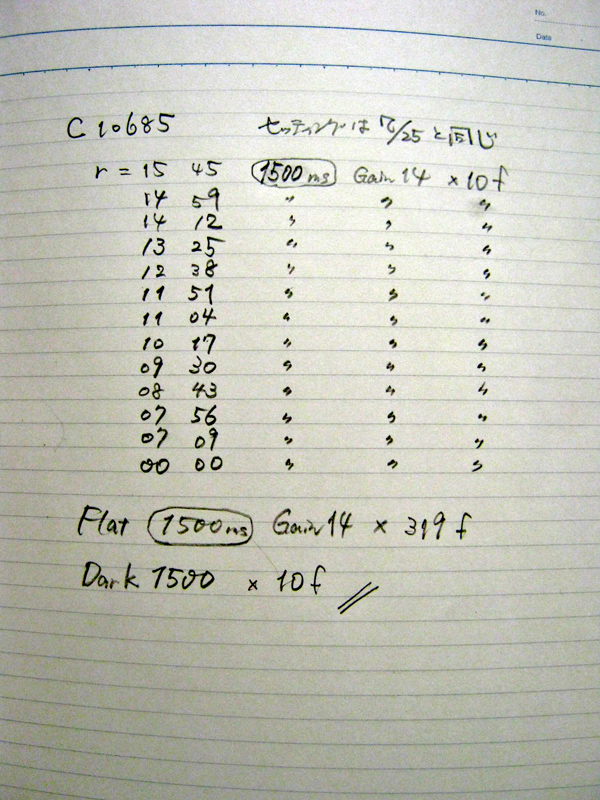 No.
Date
C 10685 セッティングは 7/25 と同じ
r = 15 45 1500ms Gain 14 × 10f
14 59 〃 〃 〃
14 12 〃 〃 〃
13 25 〃 〃 〃
12 38 〃 〃 〃
11 51 〃 〃 〃
11 04 〃 〃 〃
10 17 〃 〃 〃
09 30 〃 〃 〃
08 43 〃 〃 〃
07 56 〃 〃 〃
07 09 〃 〃 〃
00 00 〃 〃 〃
Flat 1500ms Gain 14 × 319 f
Dark 1500 × 10f //